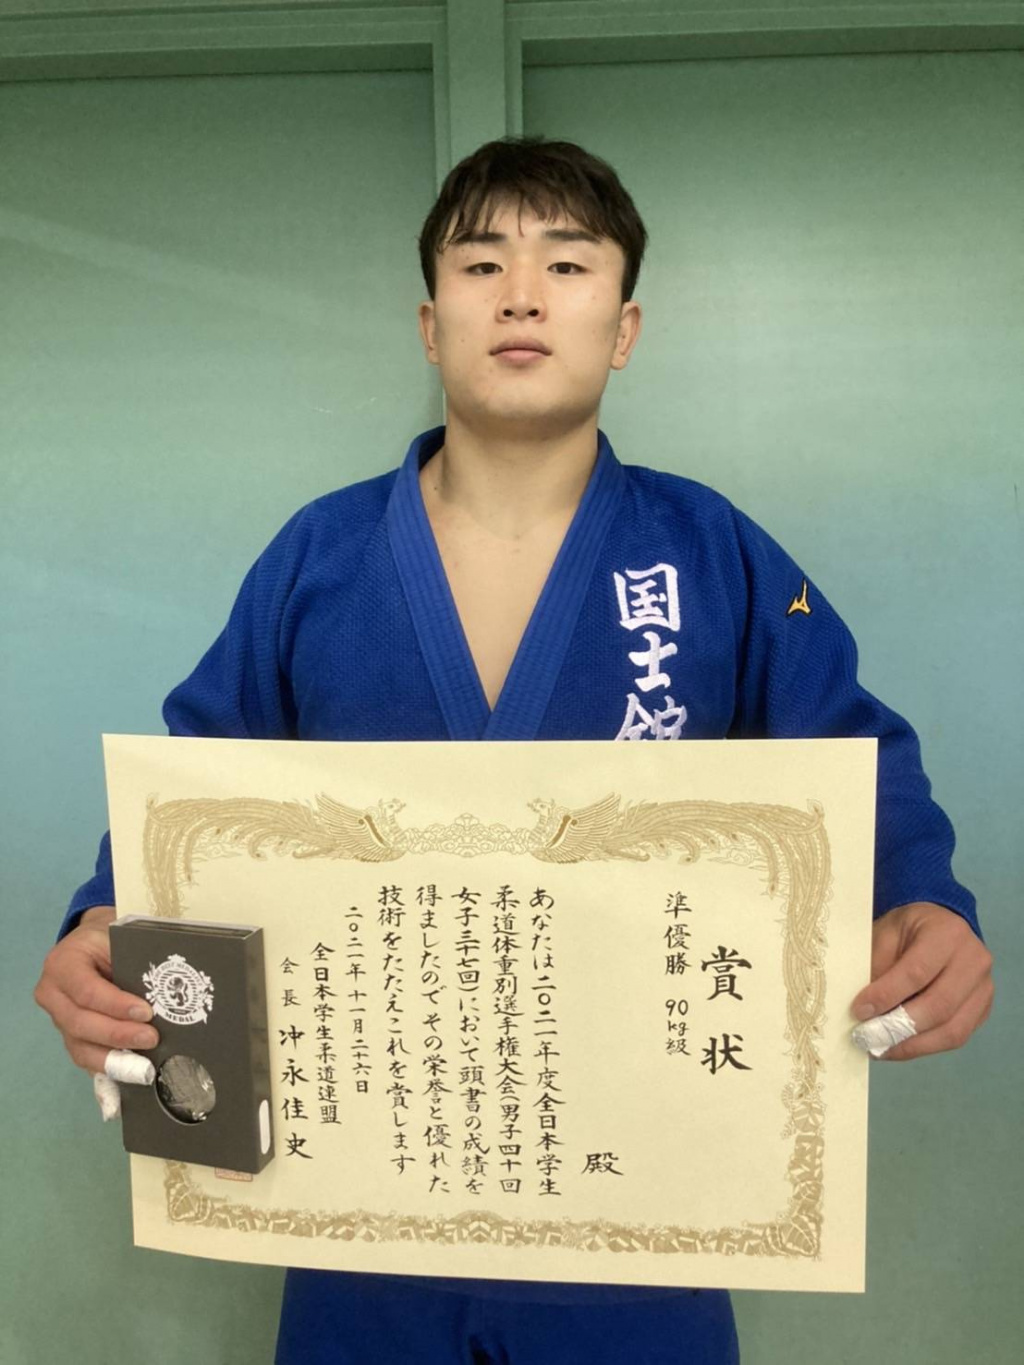 国士舘
賞状
準優勝 90kg級
殿
あなたは二〇二一年度全日本学生
柔道体重別選手権大会(男子四十回
女子三十七回)において頭書の成績を
得ましたのでその栄誉と優れた
技術をたたえこれを賞します
二〇二一年十一月二十六日
全日本学生柔道連盟
会長 冲永佳史
MEDAL